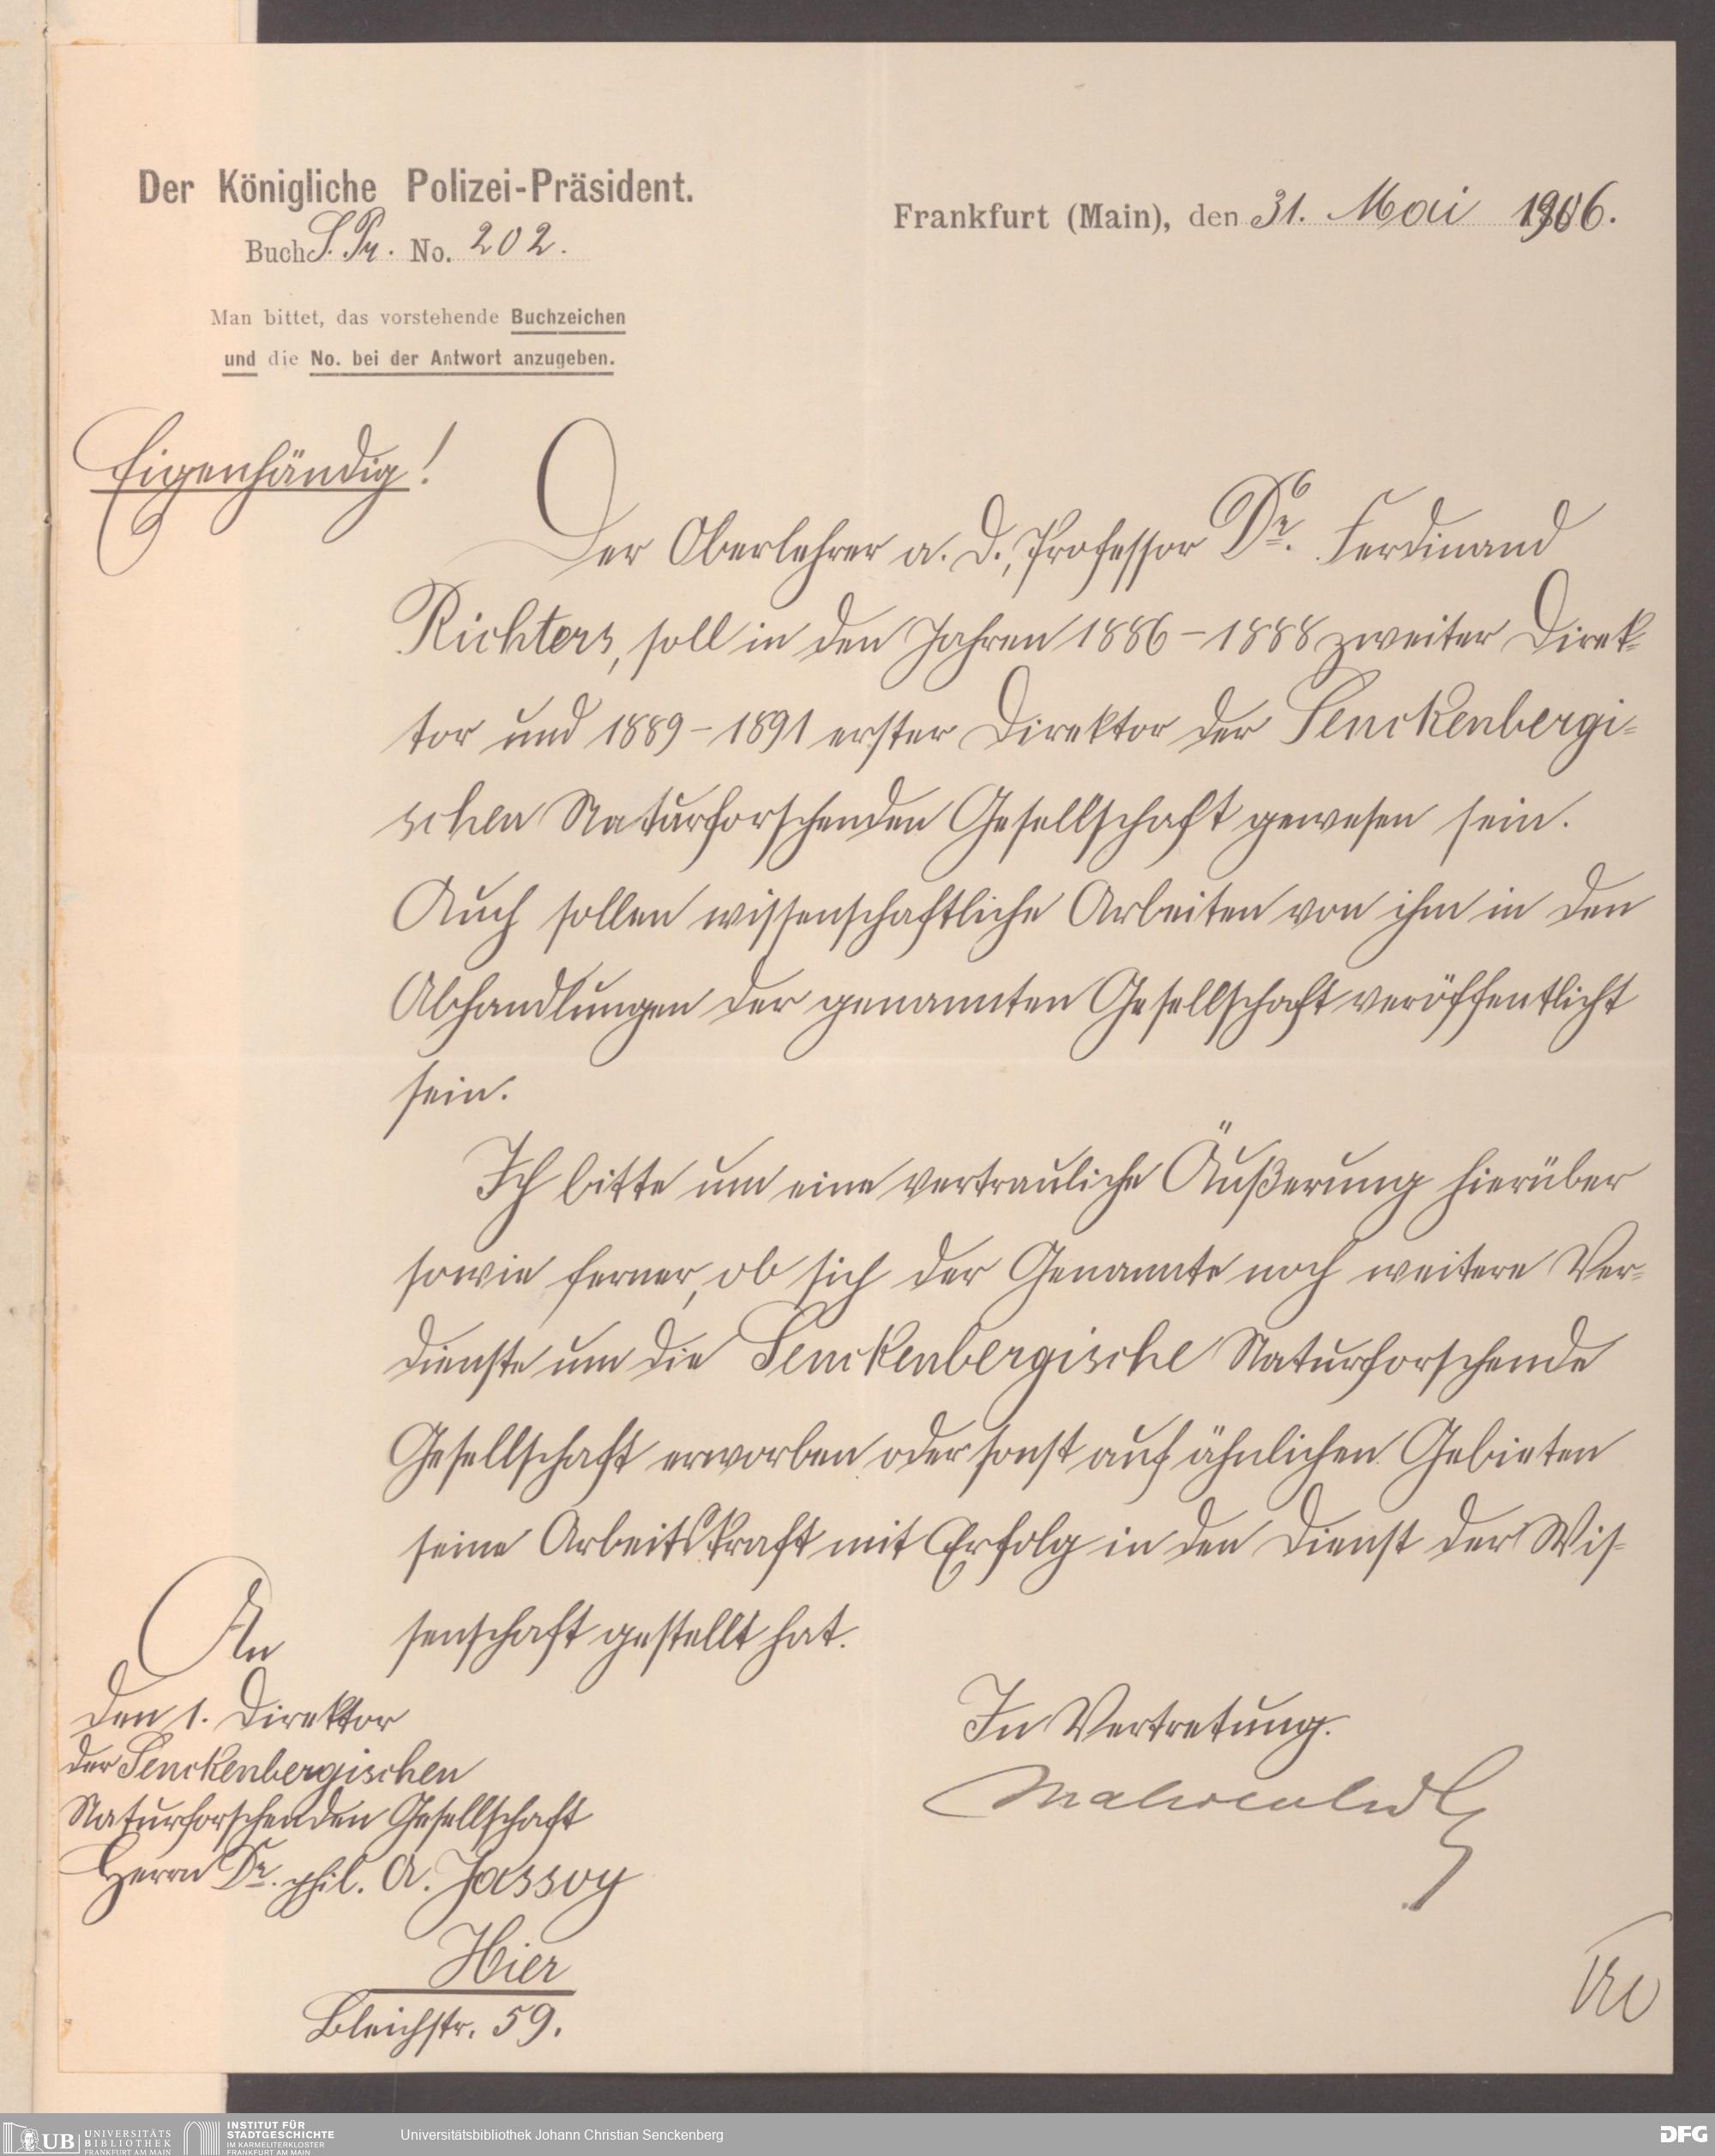 Der Königliche Polizei-Präsident.
Buch S. Pr. No. 202.
Man bittet, das vorstehende Buchzeichen
und die No. bei der Antwort anzugeben.
Frankfurt (Main), den 31. Mai 1906.
Eigenhändig!
Der Oberlehrer a. D., Professor Dr. Ferdinand
Richters, soll in den Jahren 1886-1888 zweiter Direk-
tor und 1889-1891 erster Direktor der Senckenbergi-
schen Naturforschenden Gesellschaft gewesen sein.
Auch sollen wissenschaftliche Arbeiten von ihm in den
Abhandlungen der genannten Gesellschaft veröffentlicht
sein.
Ich bitte um eine vertrauliche Äußerung hierüber
sowie ferner, ob sich der Genannte noch weitere Ver-
dienste um die Senckenbergische Naturforschende
Gesellschaft erworben oder sonst auf ähnlichen Gebieten
seine Arbeitskraft mit Erfolg in den Dienst der Wis-
senschaft gestellt hat.
In Vertretung.
An
den 1. Direktor
der Senckenbergischen
Naturforschenden Gesellschaft
Herrn Dr. phil. A. Jassoy
Hier
Bleichstr. 59.
UB UNIVERSITÄTS
BIBLIOTHEK
FRANKFURT AM MAIN
INSTITUT FÜR
STADTGESCHICHTE
IM KARMELITERKLOSTER
FRANKFURT AM MAIN
Universitätsbibliothek Johann Christian Senckenberg
DFG